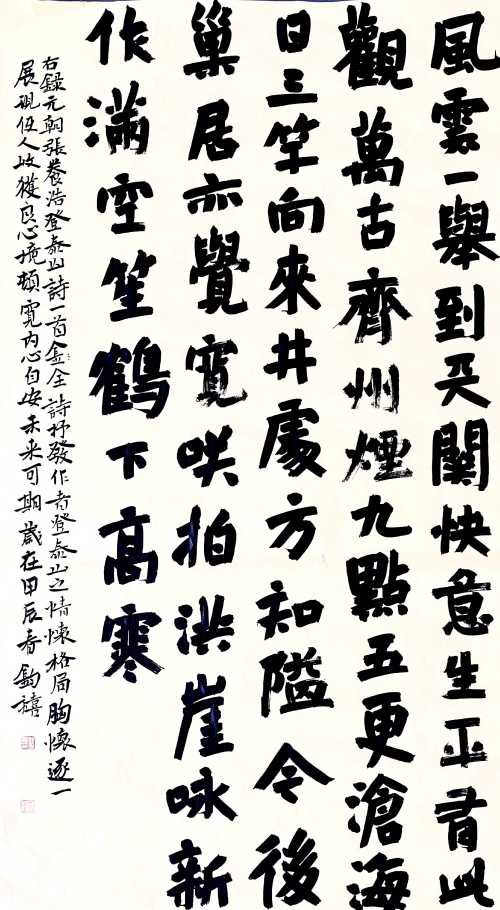 風雲一舉到天關快意生平有此
觀萬古齊州煙九點五更滄海
日三竿向來井處方知隘今後
巢居亦覺寬咲拍洪崖咏新
作滿空笙鶴下高寒
右録元朝張養浩登泰山詩一首全詩抒發作者登泰山之情懷格局胸懷逐一
展現使人收獲良心境頓寬内心自安未来可期歲在甲辰春鈞禧